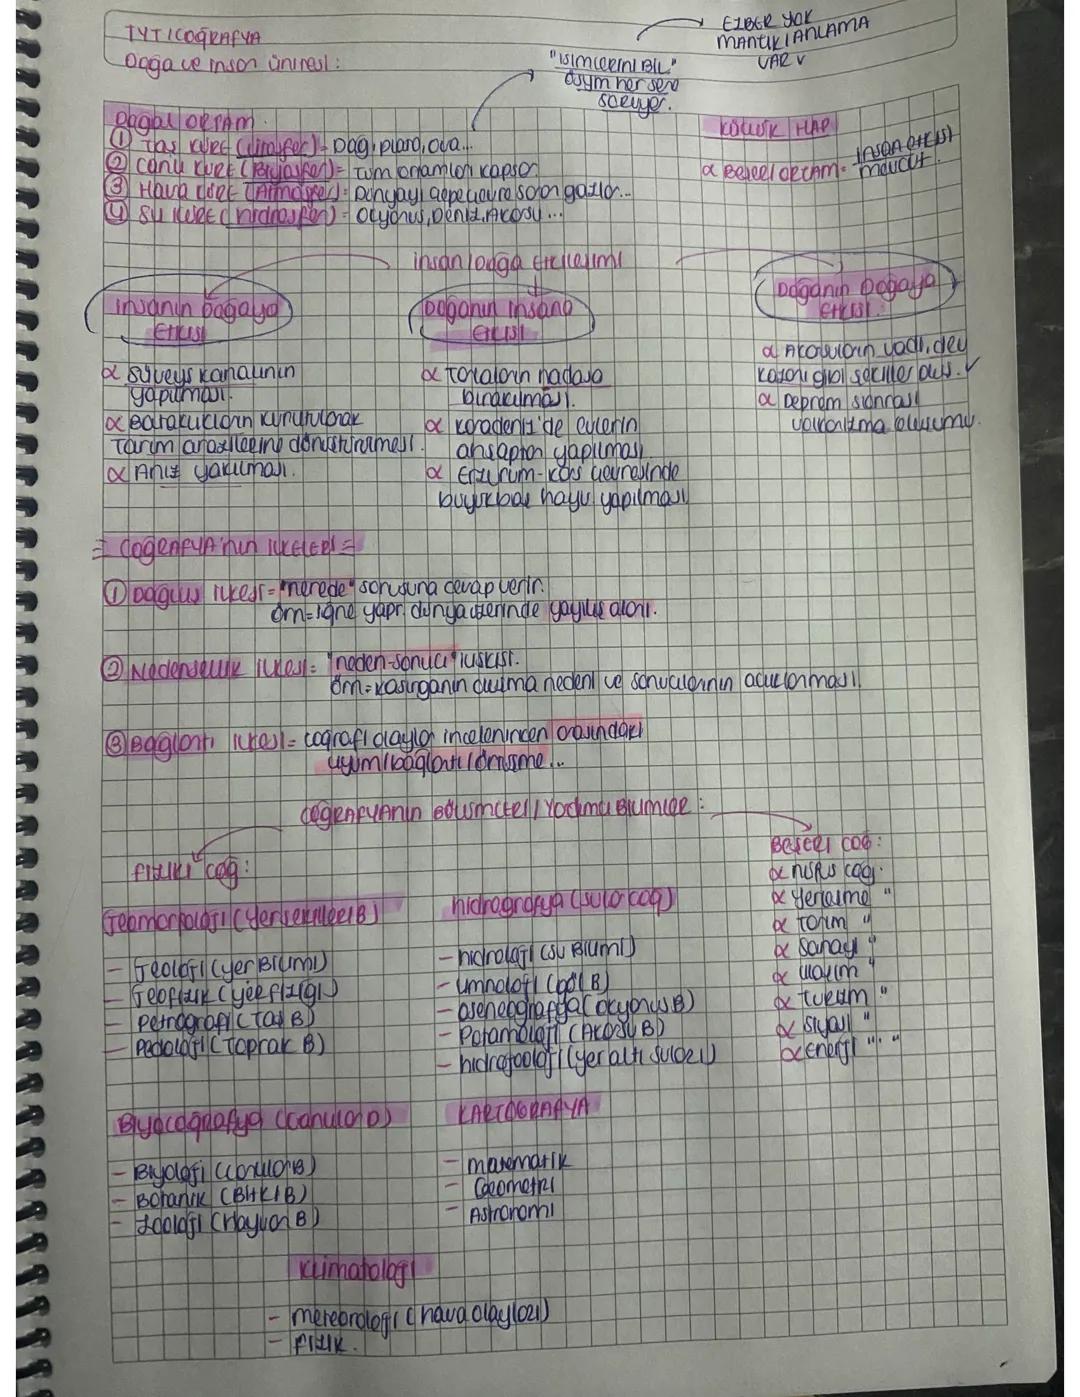 EZBER YOK
MANTIK / ANLAMA
VAR √
TYT / COĞRAFYA
Doğa ve insan ünitesi:
"isimlerini BiL"
ösym her sene
soruyor.
Doğal ORTAM
① Taş KÜRE (litosfer)= Dağ, plato, ova...
② Canlı KÜRE (Biyosfer)= Tüm
③ Hava KÜRE (Atmosfer)= Dünyayı çepeçevre saran gazlar...
④ SU KÜRE (hidrosfer) = Okyanus, Deniz, Akarsu...
KÜÇÜK HAP
α Beşeri ORTAM= insan etkisi
mevcut.
insan / Doğa Etkileşimi
insanın Doğaya
Etkisi
Doğanın insana
Etkisi
Doğanın Doğaya
Etkisi.
α Süveyş kanalının
yapılması.
α Bataklıkların kurutularak
Tarım arazilerine dönüştürülmesi.
α Anız yakılması.
α Tarlaların nadasa
bırakılması.
α Karadeniz'de evlerin
ahşaptan yapılması
α Erzurum-Kars çevresinde
büyükbaş hayv. yapılması
α Akarsuların vadi, dev
kazanı gibi şekiller oluş. √
α Deprem sonrası
volkanizma oluşumu.
= COĞRAFYA'nın İLKELERİ =
① Dağılış ilkesi= "nerede" sorusuna cevap verir.
örn= iğne yapr. dünya üzerinde yayılış alanı.
② Nedensellik ilkesi= "neden-sonuç" ilişkisi.
örn= Kasırganın oluşma nedeni ve sonuçlarının açıklanması.
③ Bağlantı ilkesi= coğrafi olaylar incelenirken arasındaki
uyum / bağlantı /
COĞRAFYAnın Bölümleri / Yardımcı Bilimler:
Fiziki coğ:
Beşeri coğ:
α nüfus coğ.
α Yerleşme "
α Tarım "
α Sanayi "
α ulaşım "
α Turizm "
α siyasi "
α Enerji " . "
Jeomorfoloji (Yerşekilleri B)
- Jeoloji (yer Bilimi)
- Jeofizik (yer fiziği)
- Petrografi (Taş B)
- Pedoloji (Toprak B)
hidrografya (sular coğ)
- hidroloji (su Bilimi)
- Limnoloji (göl B)
- oseneografya (okyanus B)
- Potamoloji (Akarsu B)
- hidrojeoloji (yer altı suları)
Biyocoğrafya (canlılar B)
- Biyoloji (canlılar B)
- Botanik (Bitki B)
- Zooloji (Hayvan B)
KARTOGRAFYA
- matematik
- Geometri
- Astronomi
Klimatoloji
- meteoroloji (hava olayları)
- fizik.